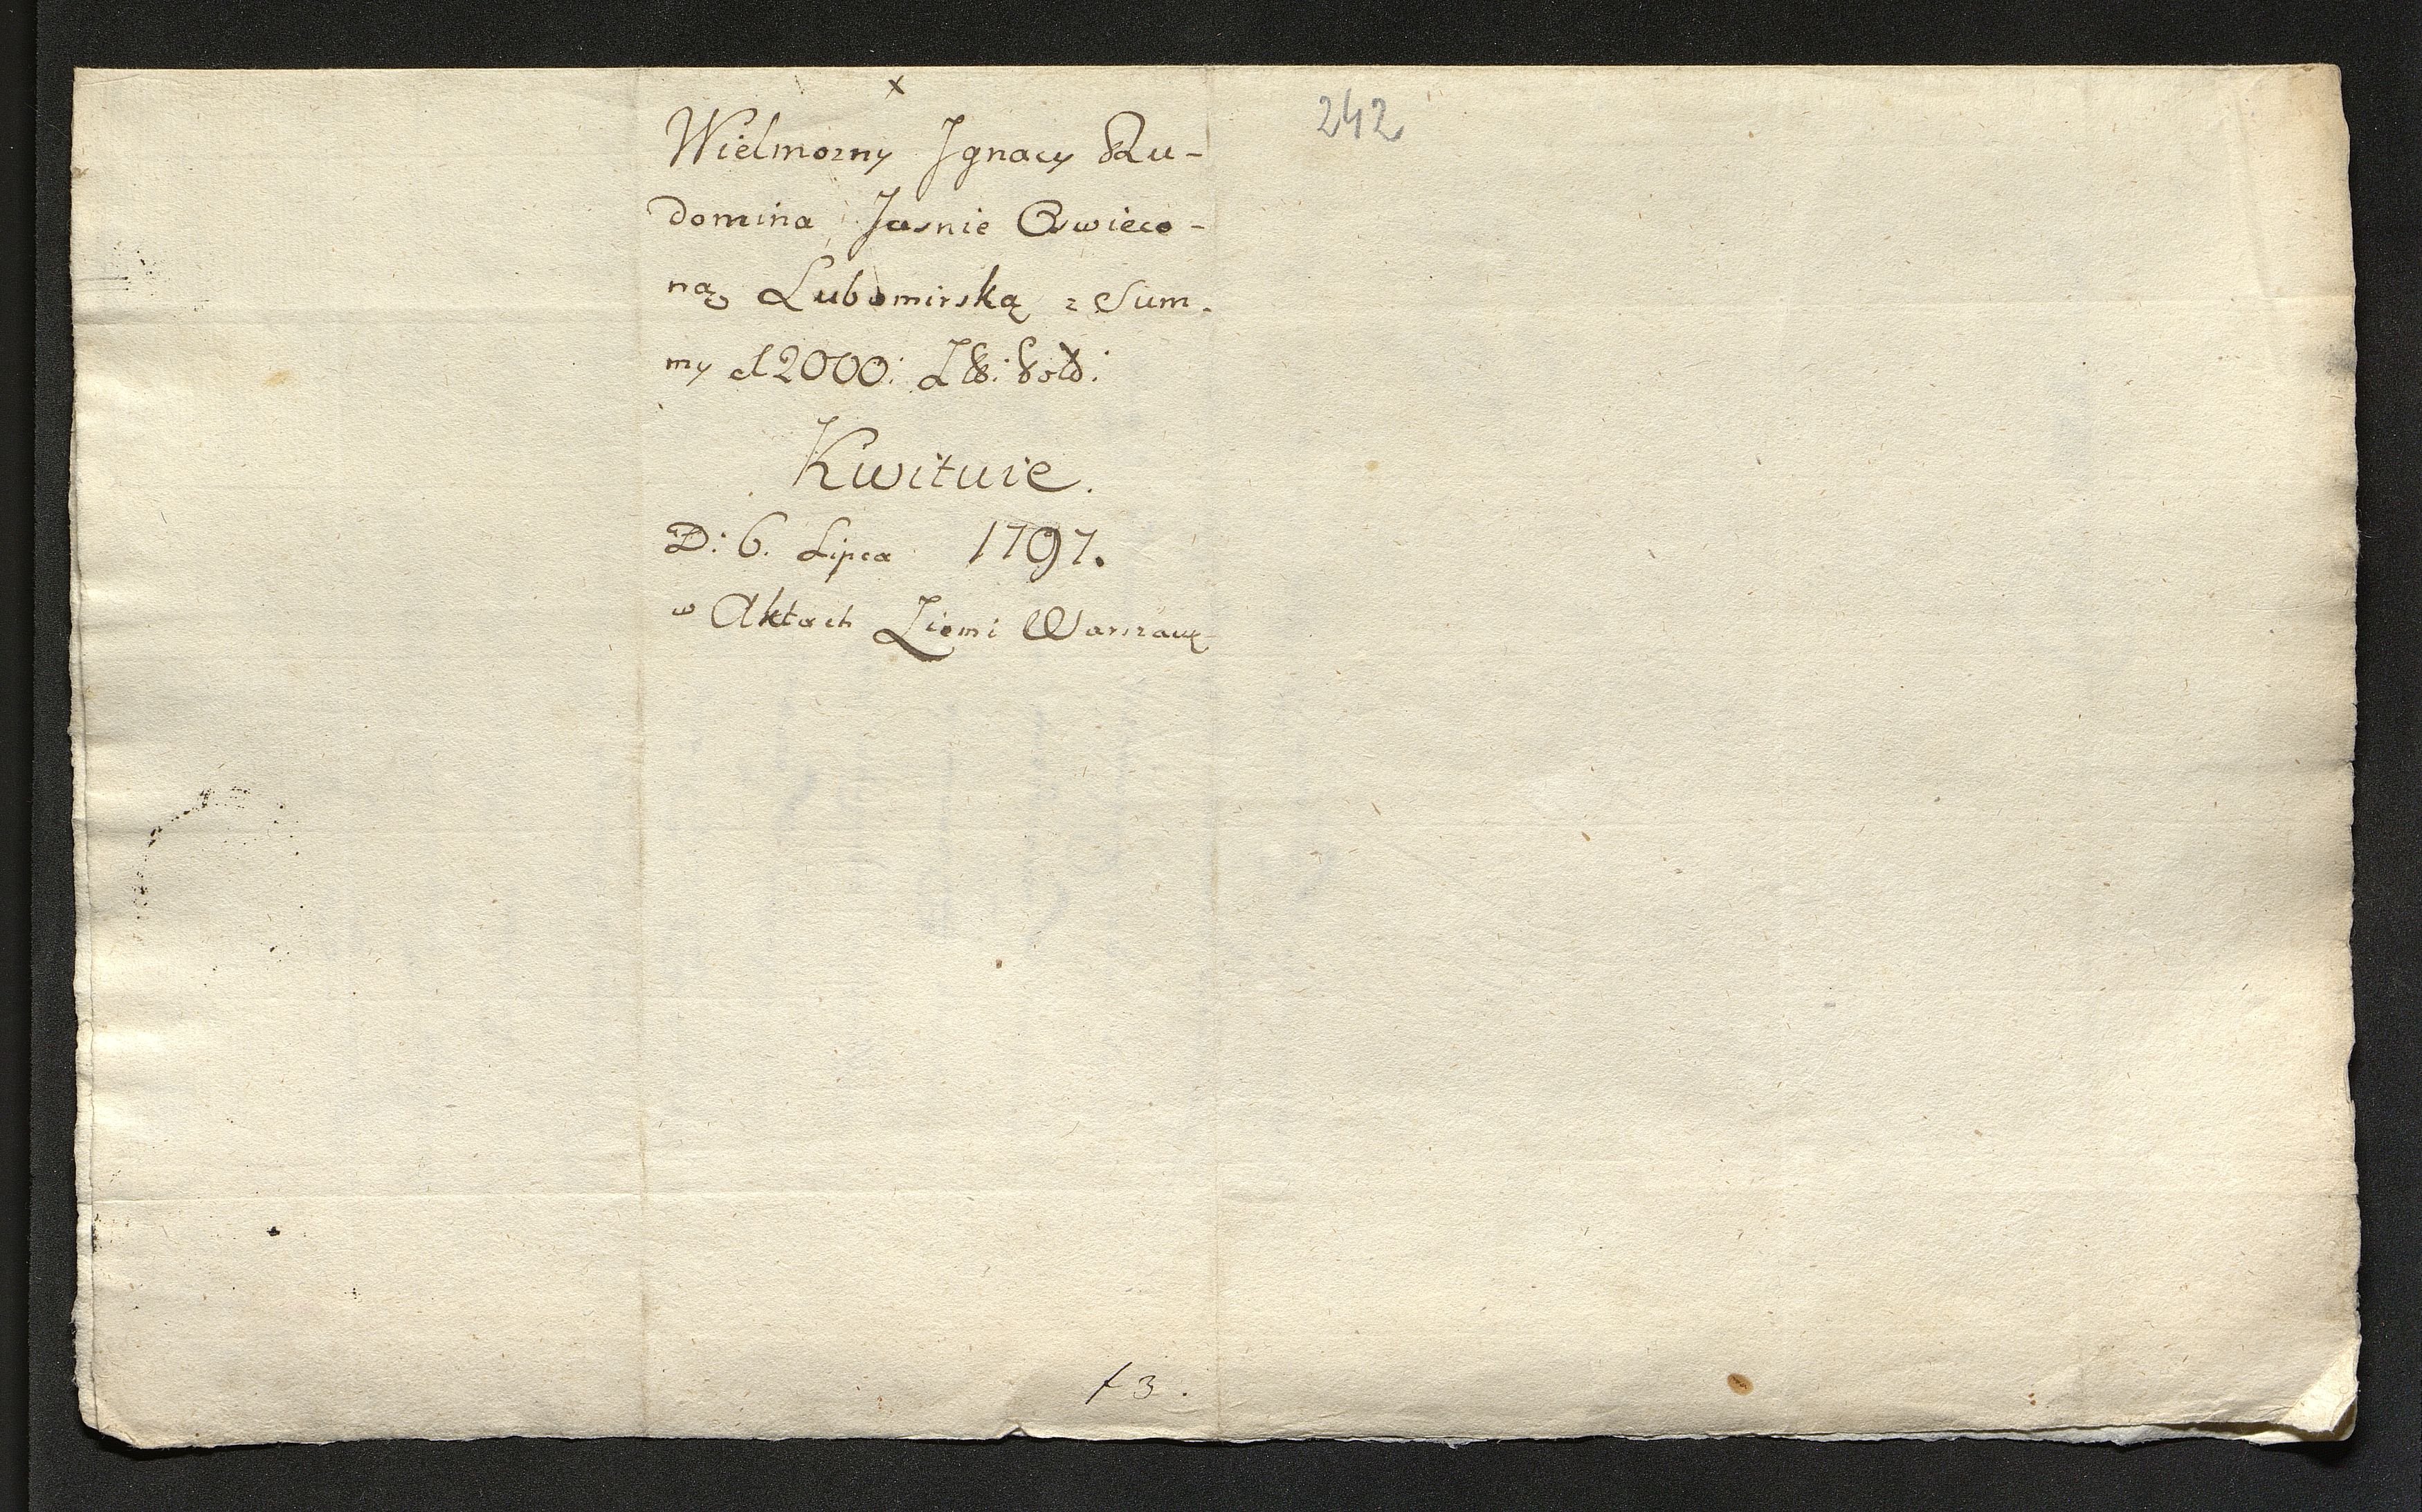 x
242
Wielmozny Jgnacy Ru-
domina Jasnie Oswieco-
ną Lubomirską z Sum-
my 12000:
Kwituie.
D: 6. Lipca 1797.
w Aktach Ziemi Warszaw
f 3.